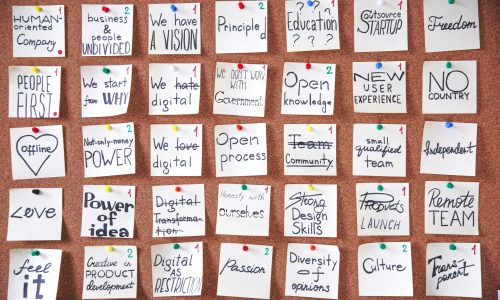 HUMAN-
oriented
Company
1
business &
people
UNDIVIDED
2
We have
A VISION
1
Principled
2
Education
? ? ?
2
Outsource
STARTUP
1
Freedom
PEOPLE
FIRST
1
We start
from WHY
2
We hate
digital
1
We DON'T WORK
with
Government
1
Open
knowledge
2
NEW
USER
EXPERIENCE
2
NO
COUNTRY
Offline
Not-only-money
POWER
2
We love
digital
1
Open
process
Team
Community
1
small
qualified
team
Independent
Love
Power of
idea
1
Digital
Transforma-
tion
Honesty with
ourselves
1
Strong
Design
Skills
LAUNCH
1
Remote
TEAM
feel
it
Creative in
PRODUCT
development
2
Digital
AS
RESTRICTION
1
Passion
2
Diversity
of
opinions
2
Culture
2
Trans-
parent
1